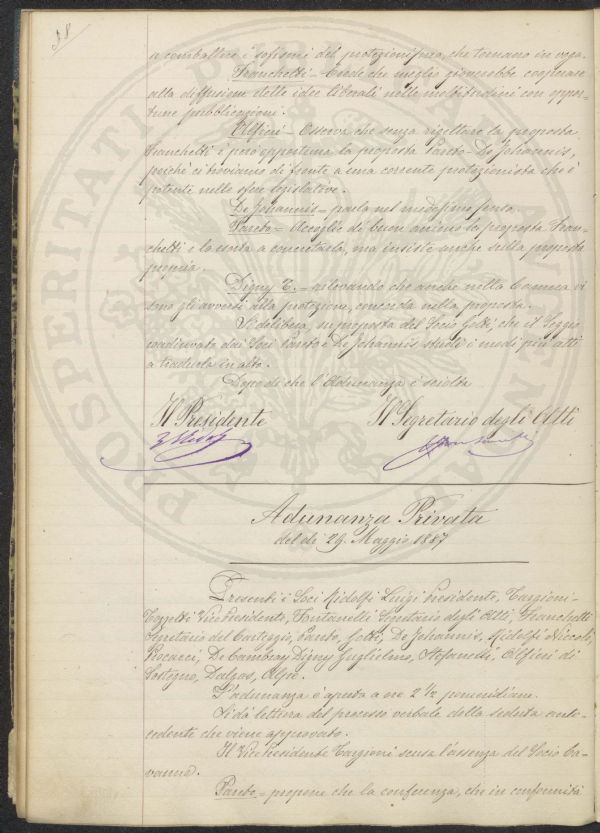 a combattere i sofismi del protezionismo, che tornano in voga.
Franchetti = Crede che meglio gioverebbe cooperare
alla diffusione delle idee liberali nelle moltitudini con oppor-
tune pubblicazioni.
Alfieri = Osserva che senza rigettare la proposta
Franchetti è però opportuna la proposta Pareto-De Johannis,
perchè ci troviamo di fronte a una corrente protezionista che è
potente nelle sfere legislative.
De Johannis = parla nel medesimo senso.
Pareto = Accoglie di buon animo la proposta Fran-
chetti e lo esorta a concretarla, ma insiste anche sulla proposta
propria.
Digny T. = rilevando che anche nella Camera vi
sono gli avversi alla protezione, concorda nella proposta.
Si delibera, su proposta del Socio Gotti, che il Seggio
coadiuvato dai Soci Pareto e De Johannis studi i modi più atti
a tradurla in atto.
Dopo di che l'Adunanza è sciolta
Il Presidente
Il Segretario degli Atti
Adunanza Privata
del dì 29. Maggio 1887
Presenti i Soci Ridolfi Luigi Presidente, Targioni-
Tozzetti Vice Presidente, Fontanelli Segretario degli Atti, Franchetti
Segretario del Carteggio, Pareto, Gotti, De Johannis, Ridolfi Niccolò,
De Cambray Digny Guglielmo, Stefanelli, Alfieri di
Sostegno, Dalgas, Alpe.
L'adunanza è aperta a ore 2 ½ pomeridiane.
Si dà lettura del processo verbale della seduta ante-
cedente che viene approvato.
Il Vice Presidente Targioni scusa l'assenza del Socio Ca-
vanna.
Pareto = propone che la conferenza, che in conformità
PROSPERITATI